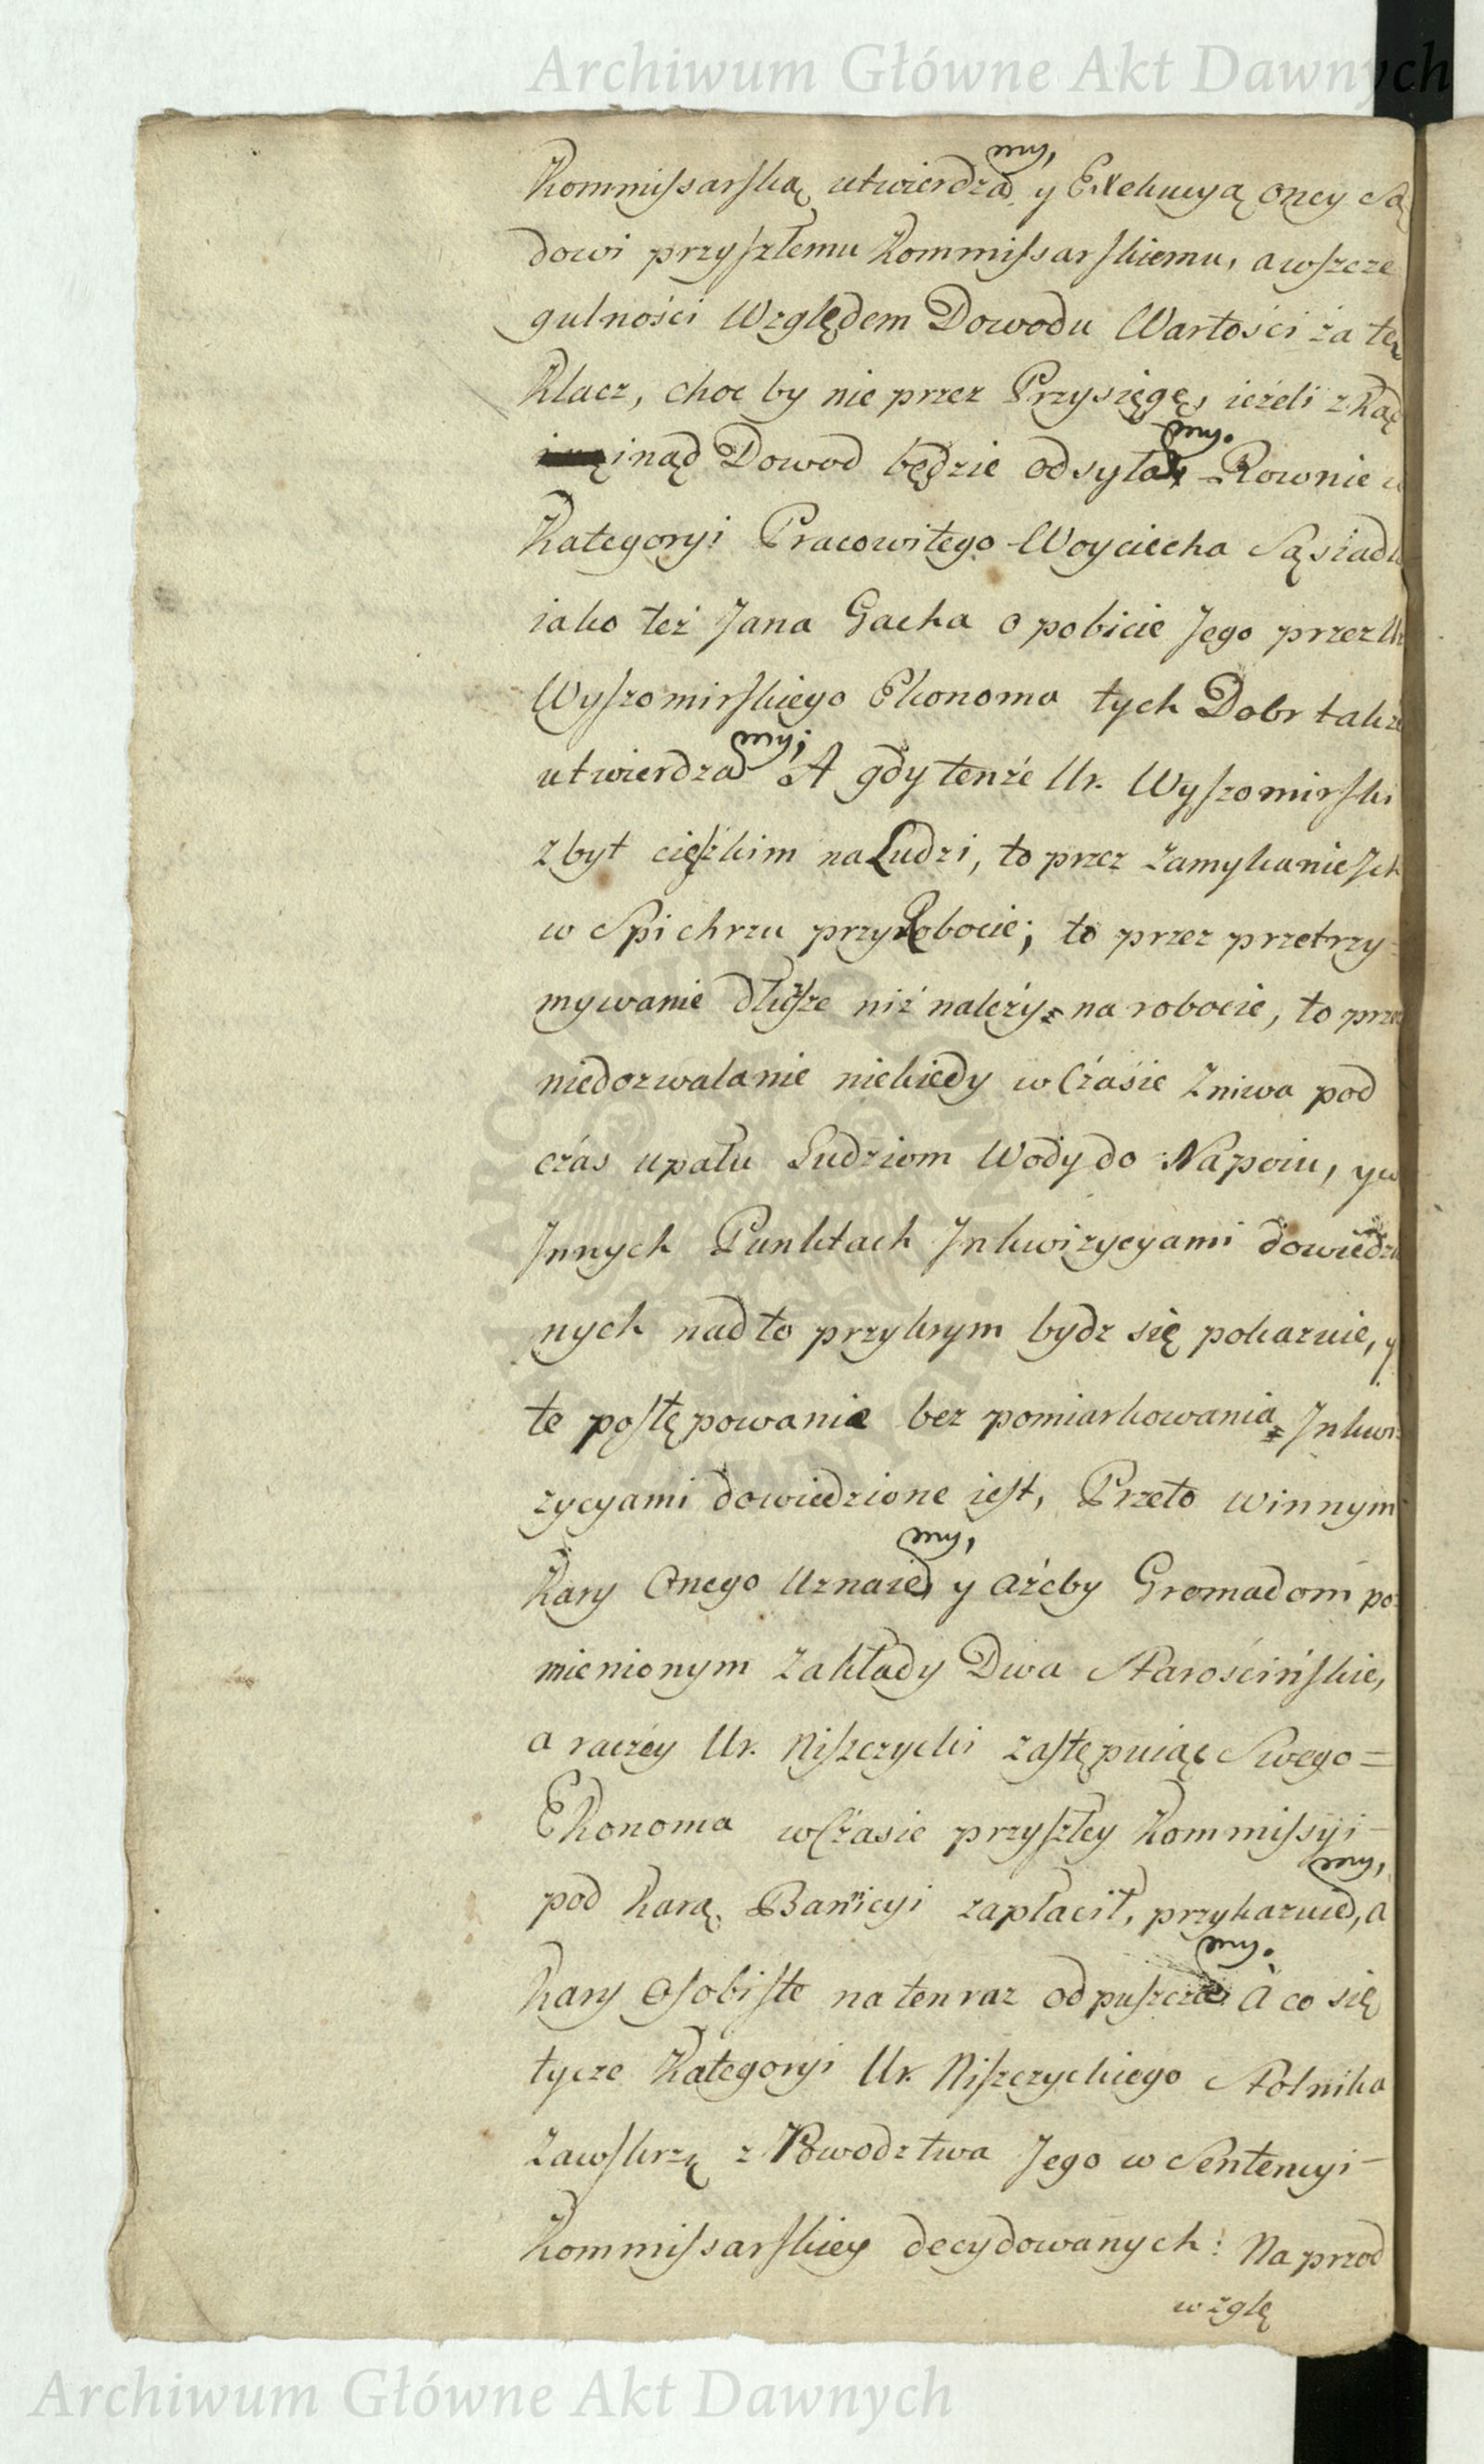 Archiwum Główne Akt Dawnych
Kommissarską utwierdzamy, y Exekucyą oney Są
dowi przyszłemu Kommissarskiemu, a wszcze
gulności Względem Dowodu Wartości za tę
Klacz, choc by nie przez Przysięgę, ieżeli zkąd
inąd Dowod będzie odsyłamy. Rownie w
Kategoryi Pracowitego Woyciecha Sąsiadka
iako też Jana Gacha o pobicie Jego przez Ur.
Wyszomirskiego Ekonoma tych Dobr także
utwierdzamy; A gdy tenże Ur. Wyszomirski
zbyt cięźkim na Ludzi, to przez zamykanie Jch
w Spichrzu przy Robocie; to przez przetrzy-
mywanie dłuższe niż należy na robocie, to przez
niedozwalanie niekiedy w Czásie Zniwa pod
czás upału Ludziom Wody do Napoiu, y w
Jnnych Punktach Jnkwizycyami dowiedzio
nych nadto przykrym bydz się pokazuie, y
te postępowanie bez pomiarkowania Jnkwi-
zycyami dowiedzione iest, Przeto winnym
Kary Onego Uznaiemy, y ażeby Gromadom po-
mienionym Zakłady Dwa Starościńskie,
a raczéy Ur. Niszczycki zastępuiąc Swego =
Ekonoma w Czasie przyszłey Kommissyi -
pod karą Bannicyi zapłacił, przykazuiemy, a
Kary Osobiste na ten raz odpuszczamy. A co się
tycze Kategoryi Ur. Niszczyckiego Stolnika
Zawskrzę z Powodztwa Jego w Sentencyi -
Kommissarskiey decydowanych: Naprzod
wzglę
Archiwum Główne Akt Dawnych